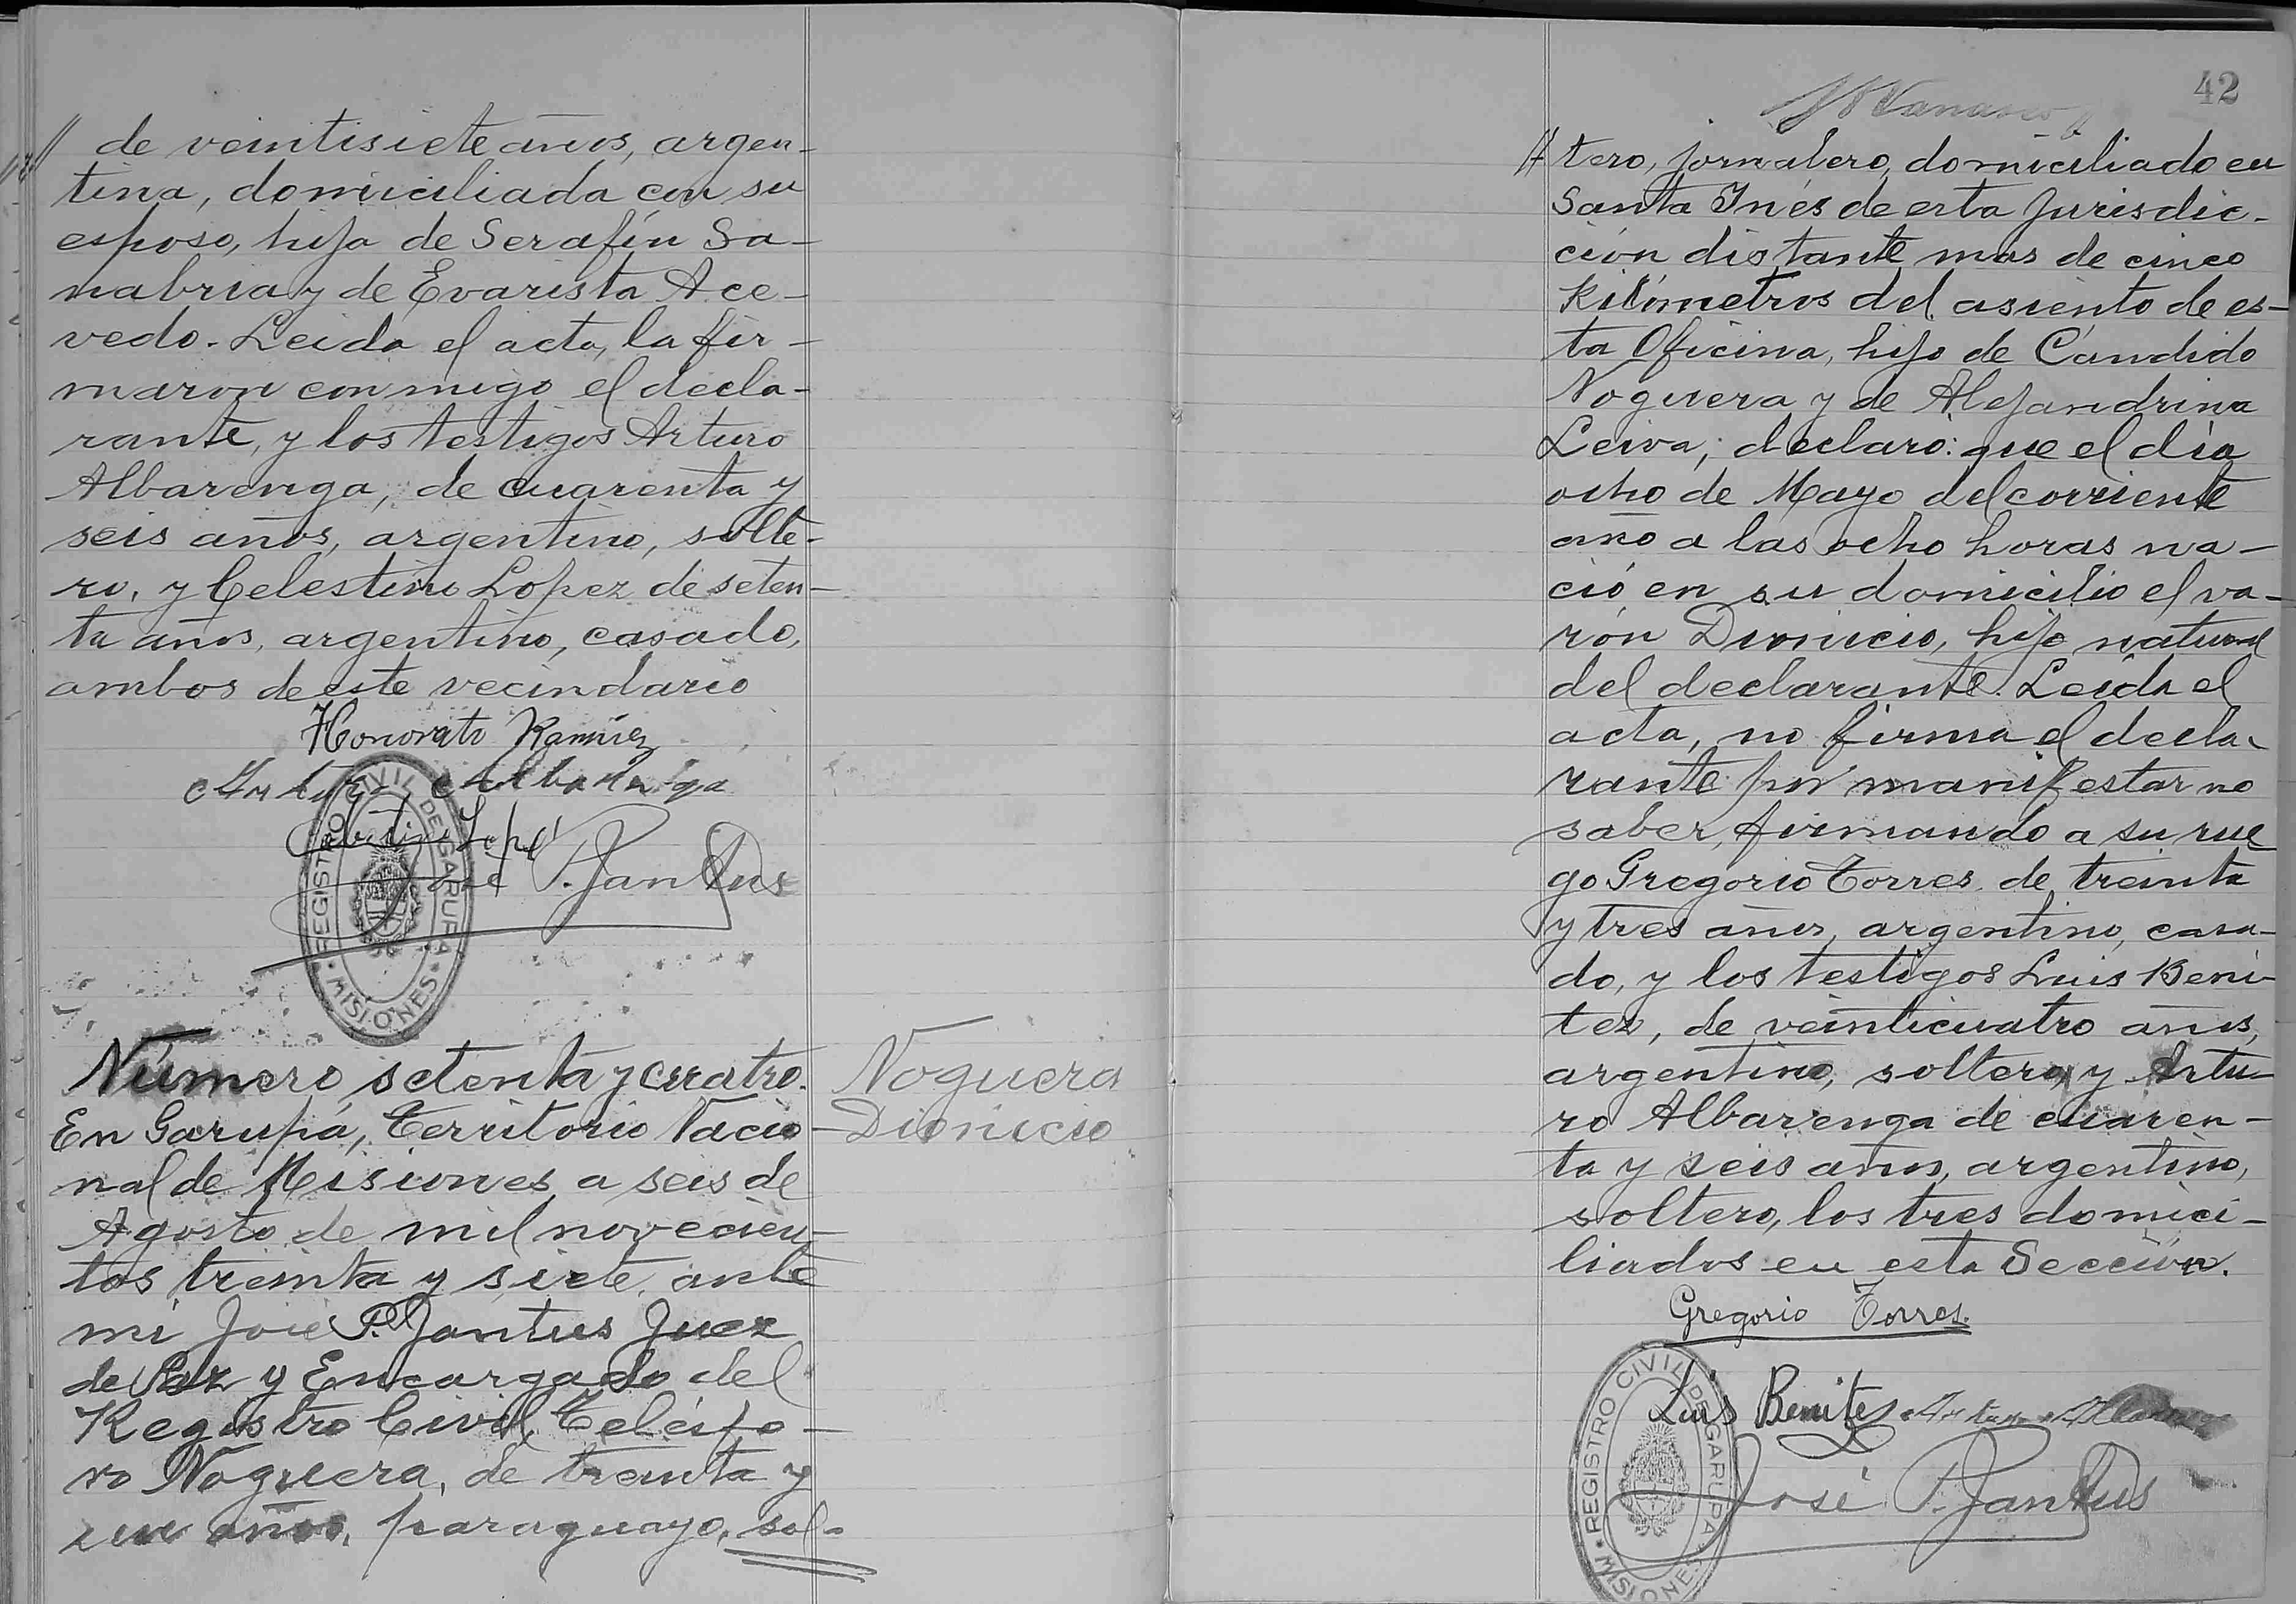 // de veintisiete años, argen-
tina, domiciliada con su
esposo, hija de Serafín Sa-
nabria y de Evarista Ace-
vedo. Leida el acta, la fir-
maron conmigo el decla-
rante, y los testigos Arturo
Albarenga, de cuarenta y
seis años, argentino, solte-
ro, y Celestino Lopez de seten-
ta años, argentino, casado,
ambos de este vecindario
Honorato Ramírez
Arturo Albarenga
José P. Jantus
REGISTRO CIVIL DE GARUPA
MISIONES
Número setenta y cuatro.
En Garupá, Territorio Nacio-
nal de Misiones, a seis de
Agosto de mil novecien-
tos treinta y siete, ante
mi José P. Jantus Juez
de Paz y Encargado del
Registro Civil, Telésfo-
ro Noguera, de treinta y
un años, paraguayo, sol-
Noguera
Dionicio
42
// tero, jornalero, domiciliado en
Santa Inés de esta Jurisdic-
ción distante mas de cinco
Kilómetros del asiento de es-
ta Oficina, hijo de Cándido
Noguera y de Alejandrina
Leiva; declaró: que el día
ocho de Mayo del corriente
año a las ocho horas na-
ció en su domicilio el va-
rón Dionicio, hijo natural
del declarante. Leída el
acta, no firma el decla-
rante por manifestar no
saber, firmando a su rue
go Gregorio Torres de treinta
y tres años, argentino, casa-
do, y los testigos Luis Beni-
tez, de veinticuatro años,
argentino, soltero, y Artu-
ro Albarenga de cuaren-
ta y seis años, argentino,
soltero, los tres domici-
liados en esta Sección.
Gregorio Torres.
Luis Benitez Arturo Albarenga
José P. Jantus
REGISTRO CIVIL DE GARUPA
MISIONES